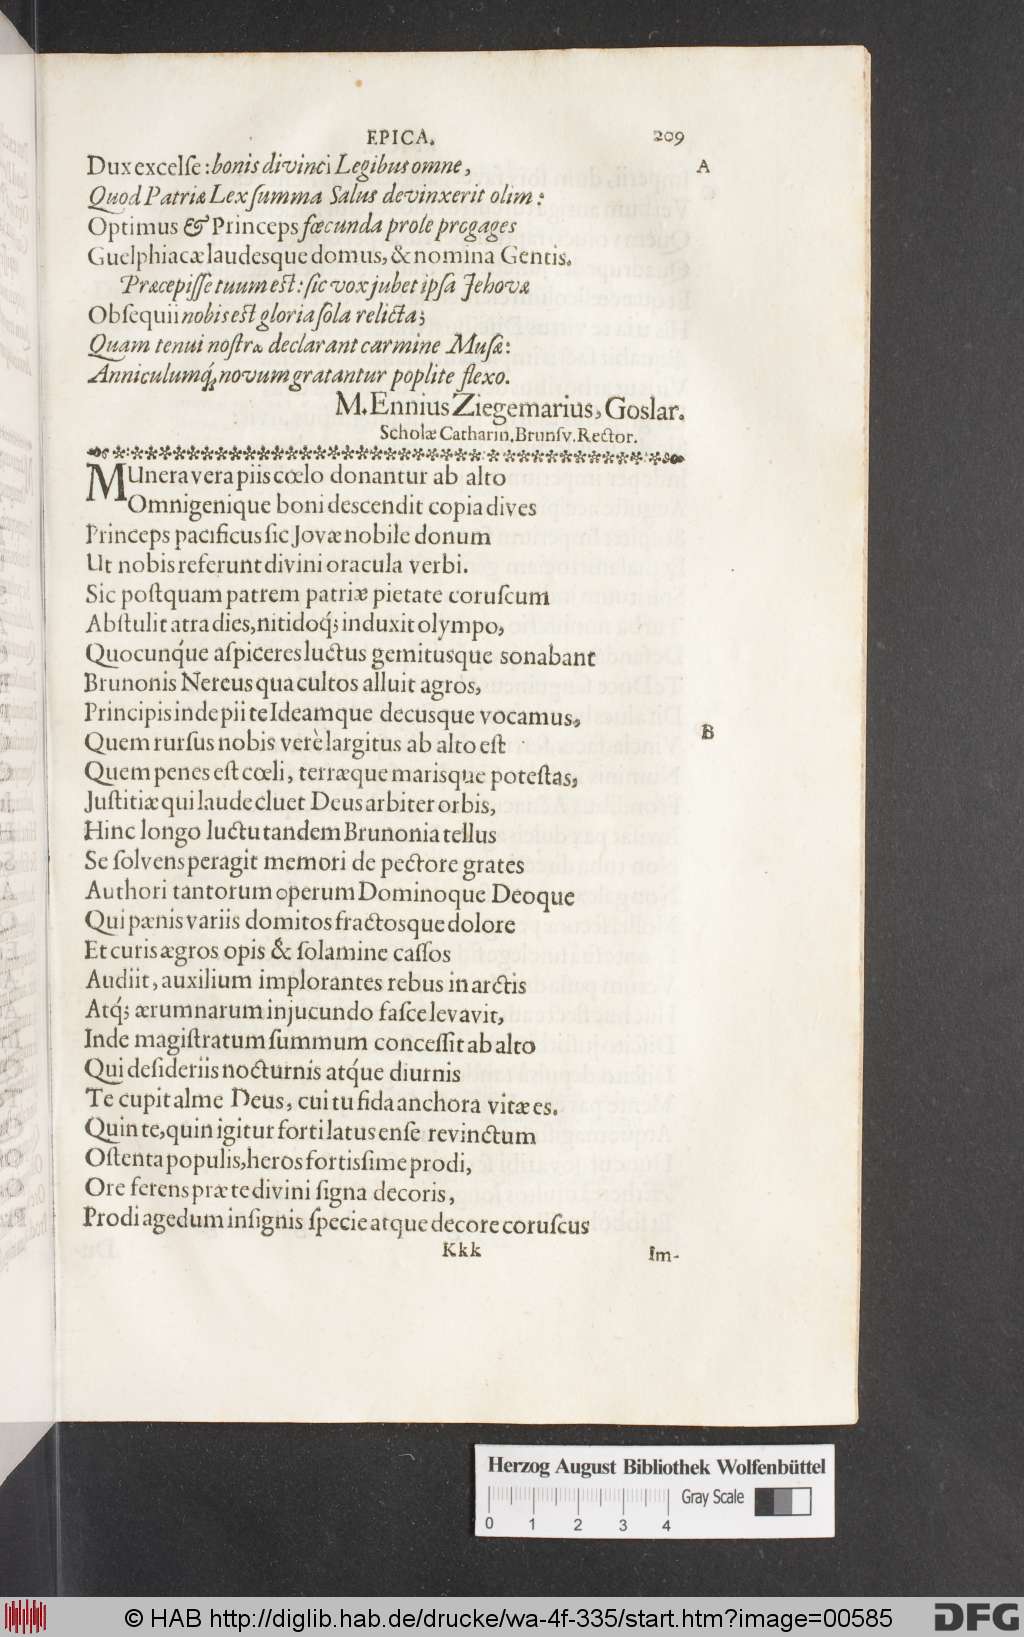 EPICA. 209
Dux excelse: bonis divinci Legibus omne, A
Quod Patriæ Lex summa Salus devinxerit olim:
Optimus & Princeps fœcunda prole progages
Guelphiacæ laudesque domus, & nomina Gentis.
Præcepisse tuum est: sic vox jubet ipsa Jehovæ
Obsequii nobis est gloria sola relicta;
Quam tenui nostræ declarant carmine Musæ:
Anniculumq́; novum gratantur poplite flexo.
M. Ennius Ziegemarius, Goslar.
Scholæ Catharin. Brunsv. Rector.
MUnera vera piis cœlo donantur ab alto
Omnigenique boni descendit copia dives
Princeps pacificus sic Jovæ nobile donum
Ut nobis referunt divini oracula verbi.
Sic postquam patrem patriæ pietate coruscum
Abstulit atra dies, nitidoq́; induxit olympo,
Quocunq́ue aspiceres luctus gemitusque sonabant
Brunonis Nereus qua cultos alluit agros,
Principis inde pii te Ideamque decusque vocamus,
Quem rursus nobis verè largitus ab alto est B
Quem penes est cœli, terræque marisque potestas,
Justitiæ qui laude cluet Deus arbiter orbis,
Hinc longo luctu tandem Brunonia tellus
Se solvens peragit memori de pectore grates
Authori tantorum operum Dominoque Deoque
Qui pænis variis domitos fractosque dolore
Et curis ægros opis & solamine cassos
Audiit, auxilium implorantes rebus in arctis
Atq́; ærumnarum injucundo fasce levavit,
Inde magistratum summum concessit ab alto
Qui desideriis nocturnis atq́ue diurnis
Te cupit alme Deus, cui tu fida anchora vitæ es.
Quin te, quin igitur forti latus ense revinctum
Ostenta populis, heros fortissime prodi,
Ore ferens præ te divini signa decoris,
Prodi agedum insignis specie atque decore coruscus
Kkk Im-
Herzog August Bibliothek Wolfenbüttel
Gray Scale
0 1 2 3 4
© HAB http://diglib.hab.de/drucke/wa-4f-335/start.htm?image=00585 DFG